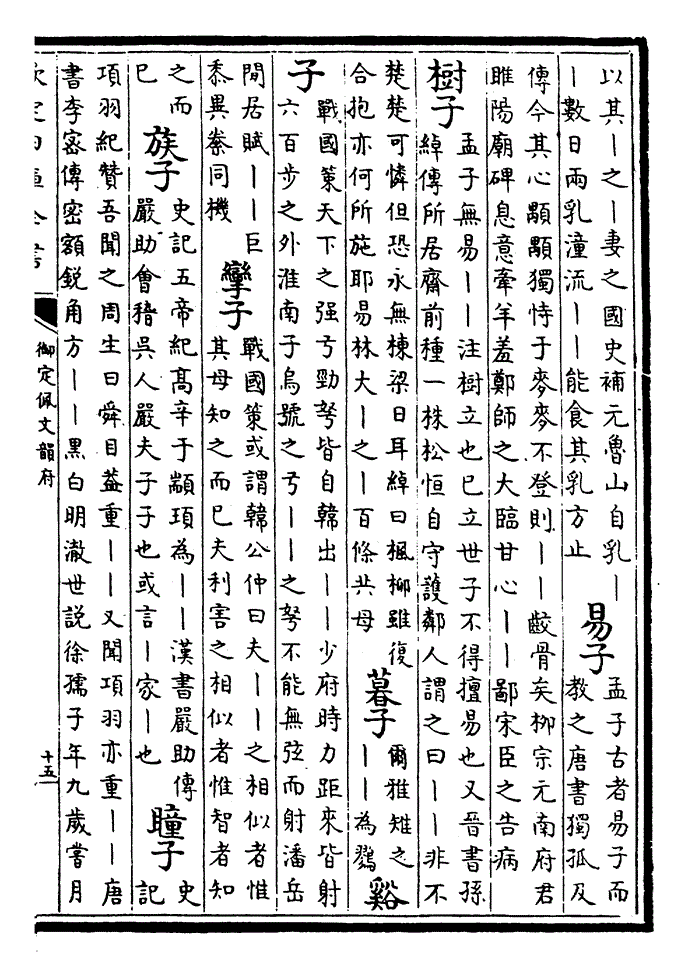 以其丨之丨妻之國史補元魯山自乳丨
丨數日兩乳潼流丨丨能食其乳方止
易子
孟子古者易子而
教之唐書獨孤及
傳今其心顒顒獨恃于麥麥不登則丨丨齩骨矣柳宗元南府君
睢陽廟碑息意牽羊羞鄭師之大臨甘心丨丨鄙宋臣之告病
樹子
孟子無易丨丨注樹立也已立世子不得擅易也又晉書孫
綽傳所居齋前種一株松恒自守護鄰人謂之曰丨丨非不
楚楚可憐但恐永無棟梁日耳綽曰楓柳雖復
合抱亦何所施耶易林大丨之丨百條共母
暮子
爾雅雉之
丨丨為鷚
谿
子
戰國策天下之强弓勁弩皆自韓出丨丨少府時力距來皆射
六百步之外淮南子烏號之弓丨丨之弩不能無弦而射潘岳
閒居賦丨丨巨
黍異絭同機
孿子
戰國策或謂韓公仲曰夫丨丨之相似者惟
其母知之而已夫利害之相似者惟智者知
之而
已
族子
史記五帝紀高辛于顓頊為丨丨漢書嚴助傳
嚴助會稽吳人嚴夫子子也或言丨家丨也
瞳子
史
記
項羽紀贊吾聞之周生曰舜目葢重丨丨又聞項羽亦重丨丨唐
書李宻傳密額鋭角方丨丨黒白明澈世說徐孺子年九歲嘗月
欽定四庫全書
御定佩文韻府
十五